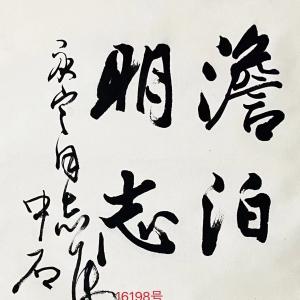 澹泊
明志
同志
中石
16198号